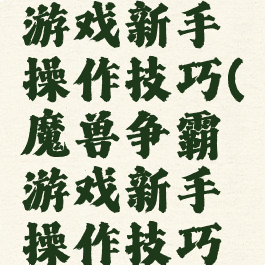 游戏新手
操作技巧(
魔兽争霸
游戏新手
操作技巧